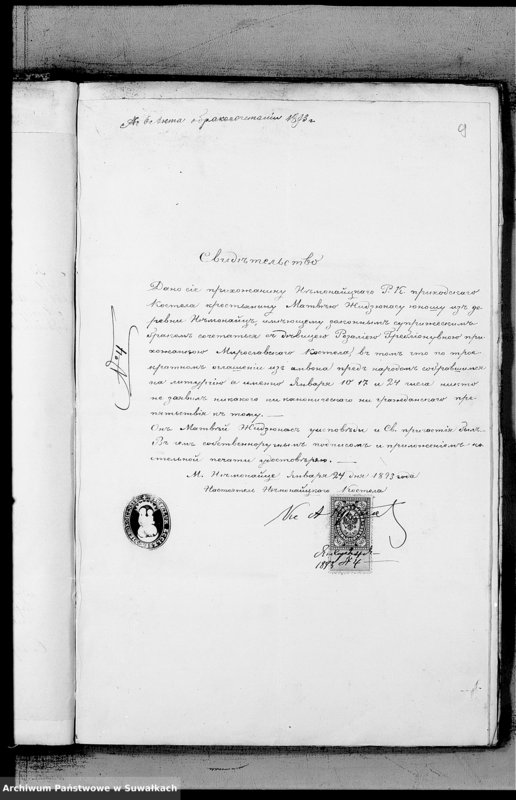 Къ 6. акта бракосочетанія 1893 г.
9
Свидѣтельство
Дано сіе прихожанину Нѣмонайцкаго Р. К. приходскаго
костела крестьянину Матвѣю Жидзюнасу юношу изъ де-
ревни Нѣмонайцъ, имѣющему законнымъ супружескимъ
бракомъ сочетаться съ дѣвицею Розаліею прихо-
жанкою Мирославскаго Костела, въ томъ что по трое-
кратномъ оглашеніи изъ амвона предъ народомъ собравшимся
на литургію а именно Января 10 17 и 24 числа никто
не заявилъ никакого ни каноническаго ни гражданскаго пре-
пятствія къ тому. —
Онъ Матвѣй Жидзюнас у исповѣди и Св. причастія былъ.
Въ чемъ собственноручнымъ подписомъ и приложеніемъ ко-
стельной печати удостовѣряю. —
М. Нѣмонайце Января 24 дня 1893 года
Настоятель Нѣмонайцкаго Костела
№ 4
Кс А
1893 № 4
Archiwum Państwowe w Suwałkach